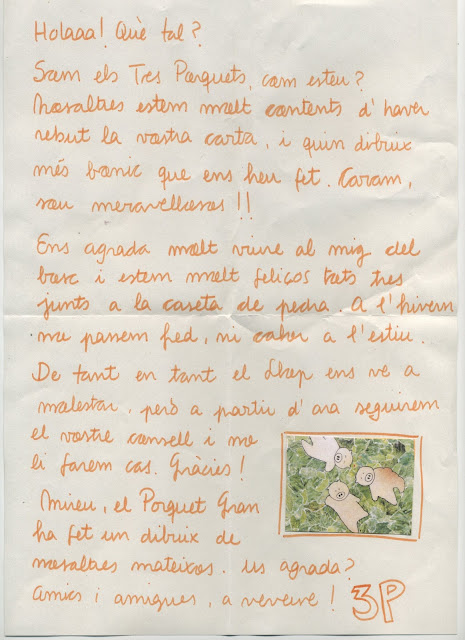 Holaaa! Què tal?
Som els Tres Porquets, com esteu?
Nosaltres estem molt contents d'haver
rebut la vostra carta, i quin dibuix
més bonic que ens heu fet. Caram,
sou meravellosos!!
Ens agrada molt viure al mig del
bosc i estem molt feliços tots tres
junts a la caseta de pedra. A l'hivern
no passem fred, ni calor a l'estiu.
De tant en tant el Llop ens ve a
molestar, però a partir d'ara seguirem
el vostre consell i no
li farem cas. Gràcies!
Mireu, el Porquet Gran
ha fet un dibuix de
nosaltres mateixos. Us agrada?
Amics i amigues, a reveure! 3P